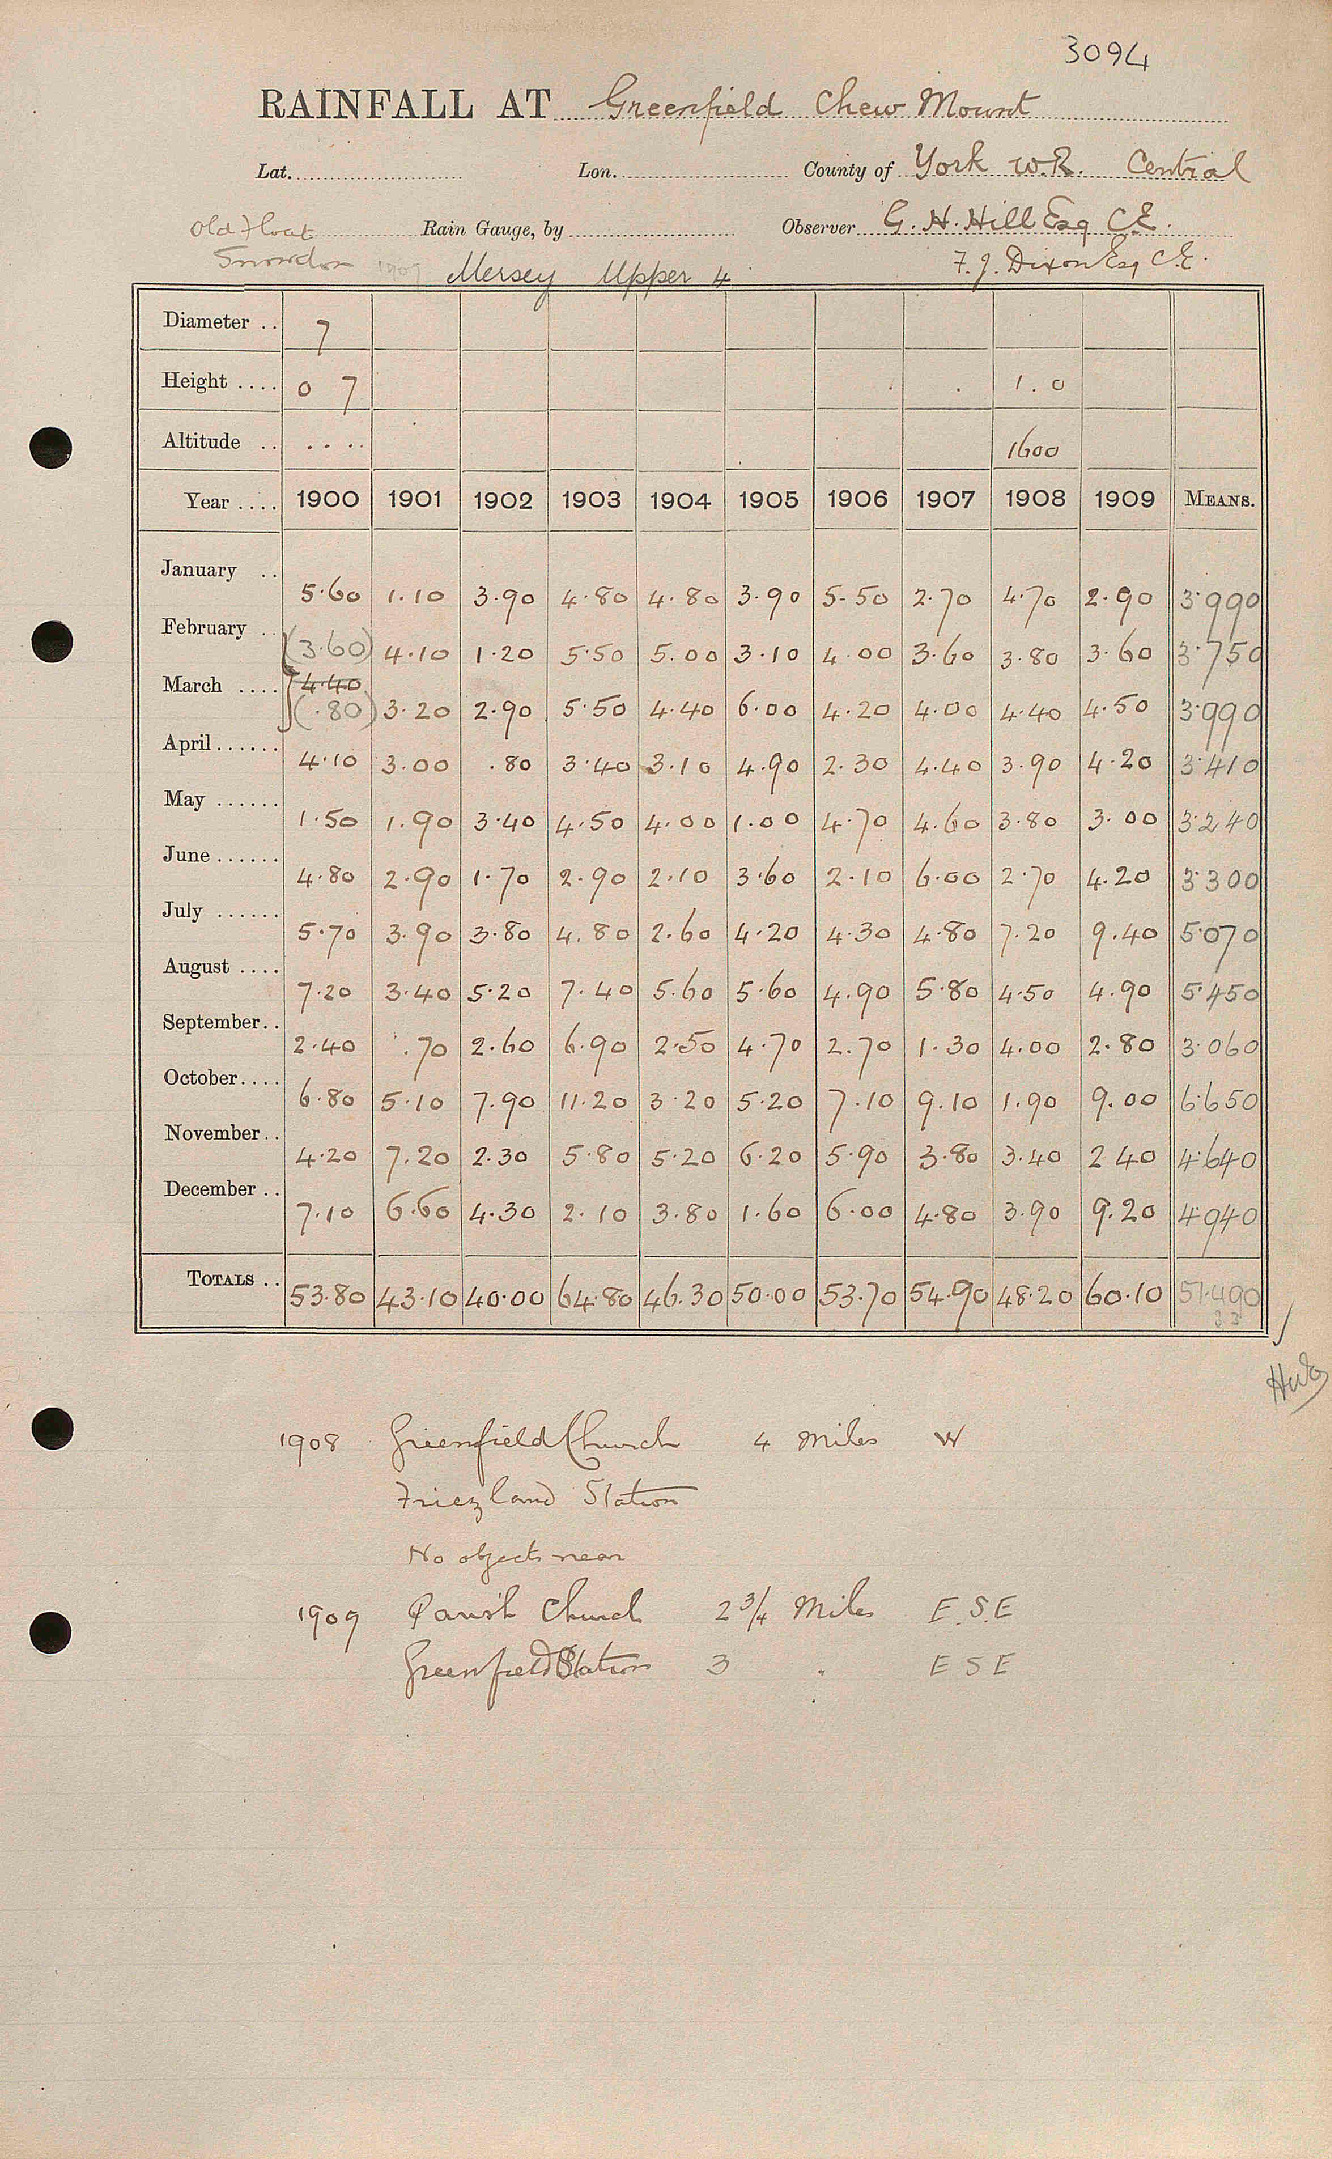 3094
RAINFALL AT Greenfield Chew Mount
Lat. Lon. County of York W.R. Central
Old Float Rain Gauge, by Observer G. H. Hill Esq C.E.
Snowdon 1909 Mersey Upper 4 F. J. Dixon Esq C.E.
Diameter .. 7
Height .... 0 7 1.0
Altitude .. .. .. 1600
Year .... 1900 1901 1902 1903 1904 1905 1906 1907 1908 1909 MEANS.
January .. 5.60 1.10 3.90 4.80 4.80 3.90 5.50 2.70 4.70 2.90 3.990
February .. (3.60) 4.10 1.20 5.50 5.00 3.10 4.00 3.60 3.80 3.60 3.750
4.40
March .... (.80) 3.20 2.90 5.50 4.40 6.00 4.20 4.00 4.40 4.50 3.990
April...... 4.10 3.00 .80 3.40 3.10 4.90 2.30 4.40 3.90 4.20 3.410
May ...... 1.50 1.90 3.40 4.50 4.00 1.00 4.70 4.60 3.80 3.00 3.240
June ...... 4.80 2.90 1.70 2.90 2.10 3.60 2.10 6.00 2.70 4.20 3.300
July ...... 5.70 3.90 3.80 4.80 2.60 4.20 4.30 4.80 7.20 9.40 5.070
August .... 7.20 3.40 5.20 7.40 5.60 5.60 4.90 5.80 4.50 4.90 5.450
September.. 2.40 .70 2.60 6.90 2.50 4.70 2.70 1.30 4.00 2.80 3.060
October.... 6.80 5.10 7.90 11.20 3.20 5.20 7.10 9.10 1.90 9.00 6.650
November.. 4.20 7.20 2.30 5.80 5.20 6.20 5.90 3.80 3.40 2 40 4.640
December .. 7.10 6.60 4.30 2.10 3.80 1.60 6.00 4.80 3.90 9.20 4.940
TOTALS .. 53.80 43.10 40.00 64.80 46.30 50.00 53.70 54.90 48.20 60.10 51.490
1908 Greenfield Church 4 Miles W
Friezland Station
No objects near
1909 Parish Church 2 3/4 Miles E.S.E
Greenfield Station 3 " E S E